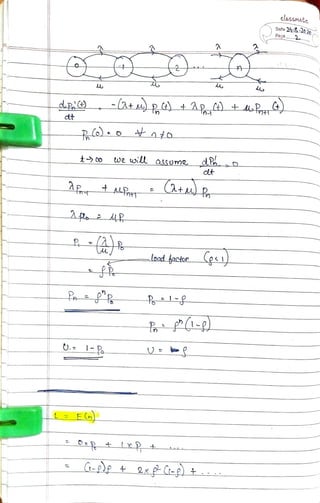 classmate
Date
Page 2
λ λ λ λ
0 1 2 ... n
μ μ μ μ
dPn(t)/dt = -(λ+μ) Pn(t) + λPn-1(t) + μPn+1(t)
Pn(0) = 0 ∀ n≠0
t→∞ we will assume dPn/dt = 0
λPn-1 + μPn+1 = (λ+μ) Pn
λP0 = μP1
P1 = (λ/μ) P0
load factor (ρ<1)
= ρP0
Pn = ρ^n P0 P0 = 1-ρ
Pn = ρ^n (1-ρ)
U = 1-P0 U = ρ
L = E(n)
= 0×P0 + 1×P1 + ....
= (1-ρ)ρ + 2×ρ²(1-ρ) + ....